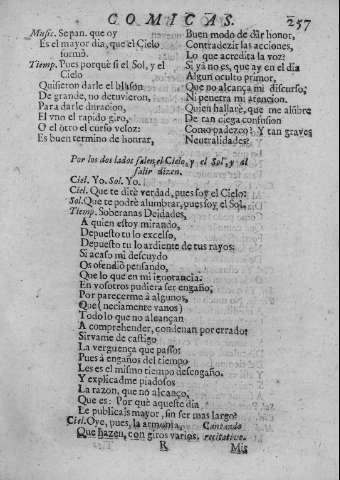 COMICAS. 257
Music. Sepan. que oy
Es el mayor dia, que el Cielo
formò.
Tiemp. Pues porquè si el Sol, y el
Cielo
Quisieron darle el blason
De grande, no detuvieron,
Para darle duracion,
El vno el rapido giro,
O el otro el curso veloz:
Es buen termino de honrar,
Buen modo de dàr honor,
Contradezir las acciones,
Lo que acredita la voz?
Si yà no es, que ay en el dia
Algun oculto primor,
Que no alcança mi discurso;
Ni penetra mi atencion.
Quien hallarè, que me alúbre
De tan ciega confusion
Como padezco? Y tan graves
Neutralidades?
Por los dos lados salen, el Cielo, y el Sol, y al
salir dizen.
Ciel. Yo. Sol. Yo.
Ciel. Que te dirè verdad, pues soy el Cielo:
Sol. Que te podrè alumbrar, pues soy el Sol.
Tiemp. Soberanas Deidades,
A quien estoy mirando,
Depuesto tu lo excelso,
Depuesto tu lo ardiente de tus rayos;
Si acaso mi descuydo
Os ofendiò pensando,
Que lo que en mi ignorancia.
En vosotros pudiera ser engaño;
Por parecerme à algunos,
Que (neciamente vanos)
Todo lo que no alcançan
A comprehender, condenan por errado:
Sirvame de castigo
La verguença que passo:
Pues à engaños del tiempo
Les es el mismo tiempo desengaño.
Y explicadme piadosos
La razon, que no alcanço,
Que es: Por què aqueste dia
Le publicais mayor, sin ser mas largo?
Ciel. Oye, pues, la armonia, Cantando
Que hazen, con giros varios, recitativo.
R Mis